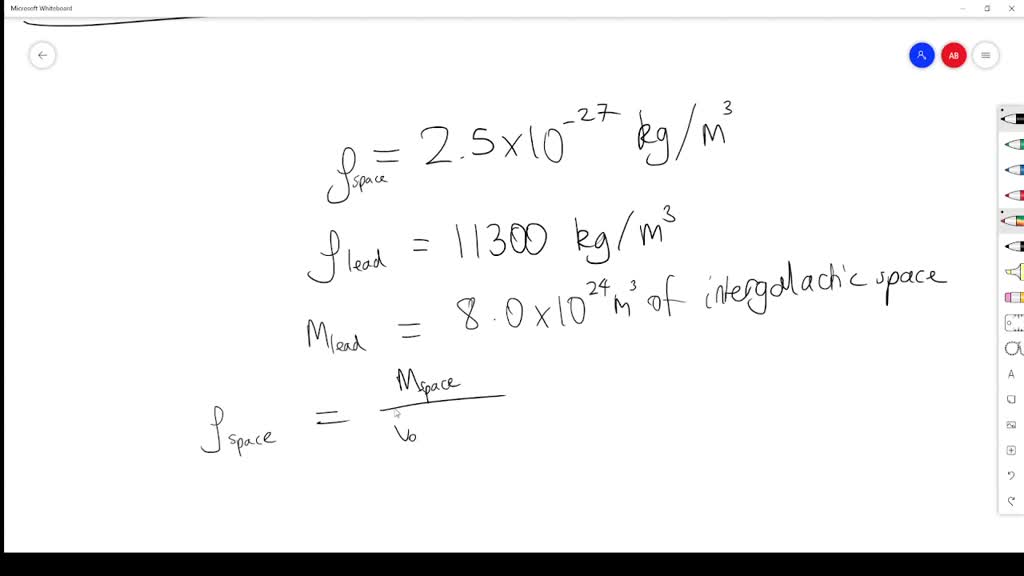 Microsoft Whiteboard
AB
ρspace = 2.5×10⁻²⁷ kg/m³
ρlead = 11300 kg/m³
Mlead = 8.0×10²⁴ m³ of intergalactic space
ρspace = Mspace
Vo
A